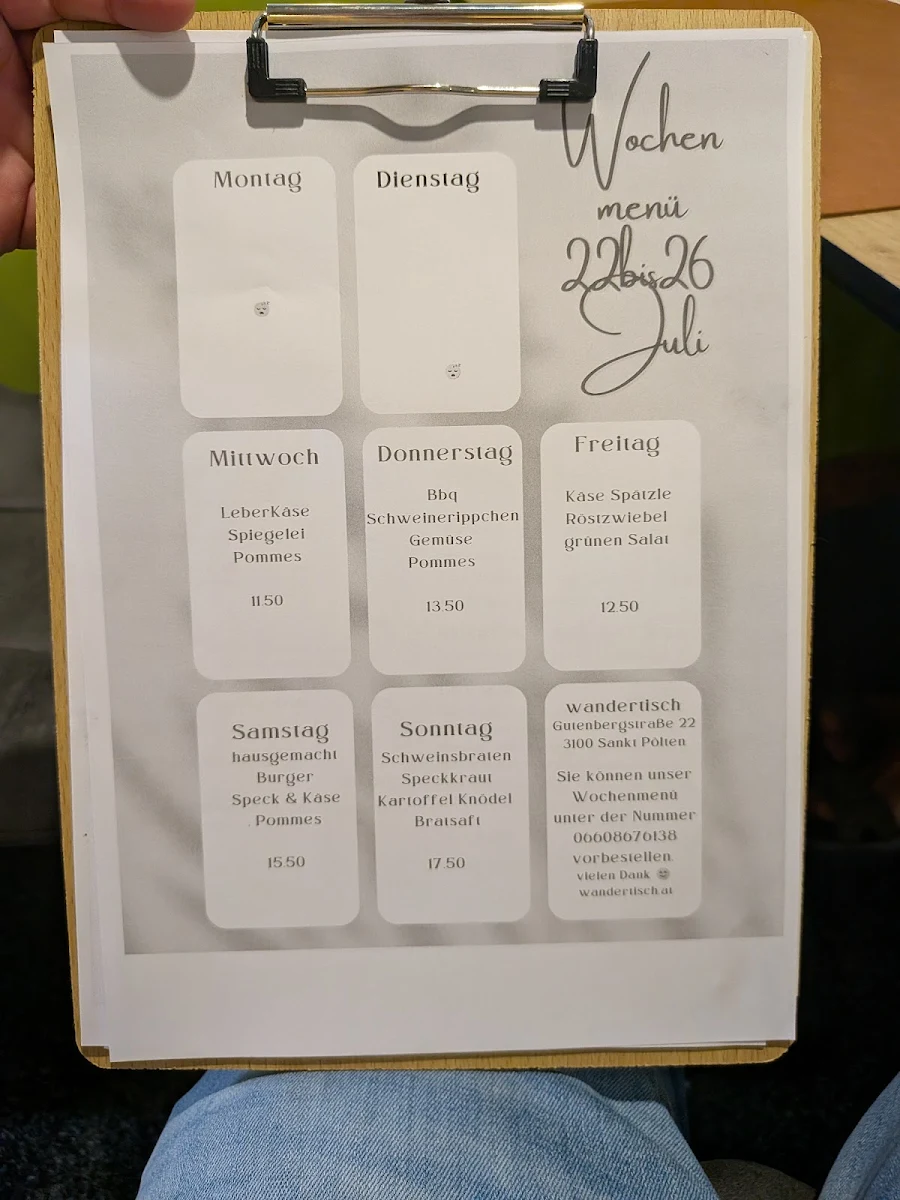 Wochen
menü
22bis26
Juli
Montag
😴
Dienstag
😴
Mittwoch
LeberKäse
Spiegelei
Pommes
11.50
Donnerstag
Bbq
Schweinerippchen
Gemüse
Pommes
13.50
Freitag
Käse Spätzle
Röstzwiebel
grünen Salat
12.50
Samstag
hausgemacht
Burger
Speck & Käse
. Pommes
15.50
Sonntag
Schweinsbraten
Speckkraut
Kartoffel Knödel
Bratsaft
17.50
wandertisch
Gutenbergstraße 22
3100 Sankt Pölten
Sie können unser
Wochenmenü
unter der Nummer
06608676138
vorbestellen.
vielen Dank 😊
wandertisch.at